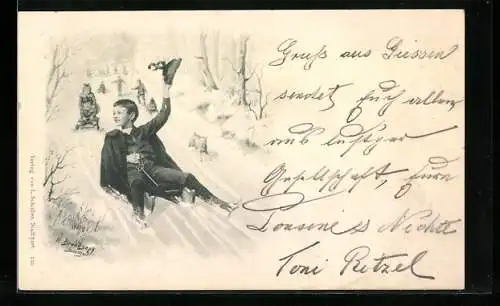 Gruß aus Giessen
sendet Euch allen
aus lustger
Gesellschaft, Eure
Cousine & Nichte
Toni Retzel
Verlag von L. Schaller, Stuttgart. 110